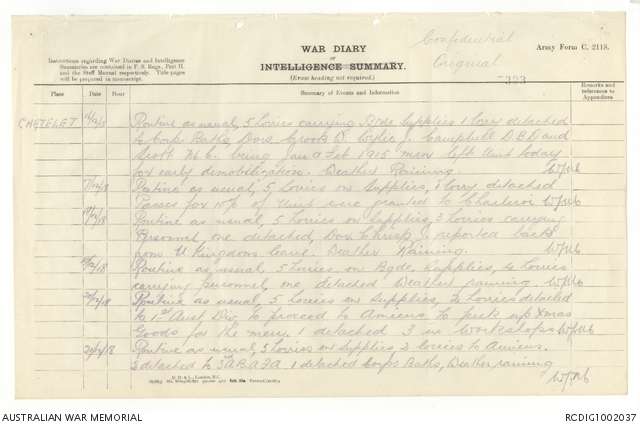 Instructions regarding War Diaries and Intelligence
Summaries are contained in F. S. Regs., Part II.
and the Staff Manual respectively. Title pages
will be prepared in manuscript.
WAR DIARY
or
INTELLIGENCE SUMMARY.
(Erase heading not required.)
Confidential
Original
Army Form C. 2118.
Place
Date
Hour
Summary of Events and Information
Remarks and
references to
Appendices
CHATELET
Routine as usual, 5 Lorries carrying Bgde Supplies 1 lorry detached
to Corps Baths, Dvrs Crook D. J. Campbell D.B.D and
Scott W.C. being Jan & Feb 1915 men left Unit today
for early demobilization. Weather Raining.
Routine as usual, 5 Lorries on Supplies, 1 lorry detached
Passes for 15% of Unit were granted to Charleroi
Routine as usual, 5 Lorries on Supplies, 3 Lorries carrying
Personnel one detached, Dvr reported back
from U Kingdom leave. Weather Raining.
Routine as usual, 5 Lorries on Bgde Supplies, 4 Lorries
carrying personnel, one detached Weather raining
Routine as usual, 5 lorries on Supplies, 2 Lorries detached
to 1st Aust Div to proceed to Amiens to pick up Xmas
Goods for the men, 1 detached 3 in Workshops
Routine as usual, 5 lorries on Supplies 2 lorries to Amiens.
detached to 1 detached Corps Baths, Weather raining
AUSTRALIAN WAR MEMORIAL
RCDIG1002037